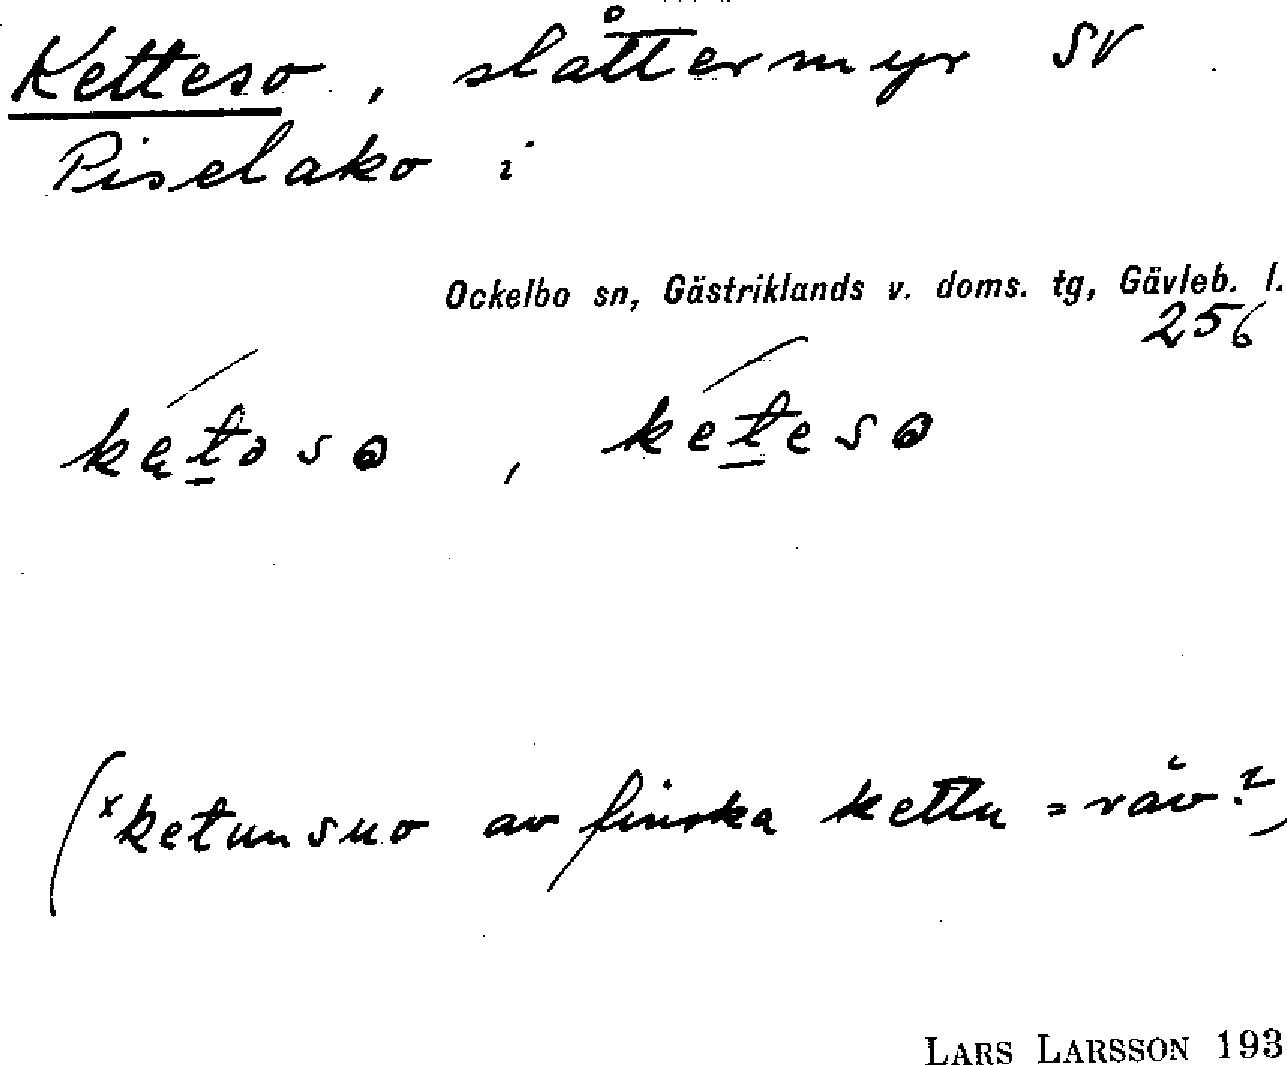 Ketteso, slåttermyr SV
Piselako i
Ockelbo sn, Gästriklands v. doms. tg, Gävleb. l.
256
kętoso, keteso
(*ketunsuo av finska kettu = räv?)
LARS LARSSON 193